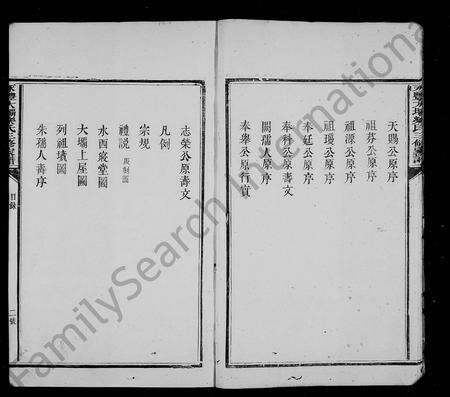 天賜公原序
祖芬公原序
祖濂公原序
祖瓊公原序
奉廷公原序
奉科公原壽文
闕孺人原序
奉舉公原行實
志榮公原壽文
凡例
宗規
禮說 服制圖
水西衆堂圖
大壩上屋圖
列祖墳圖
朱孺人壽序
目錄
二號
FamilySearch International